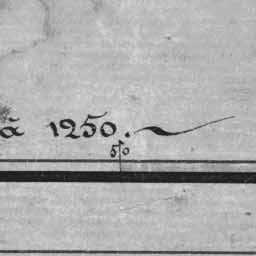 ã 1250.
50